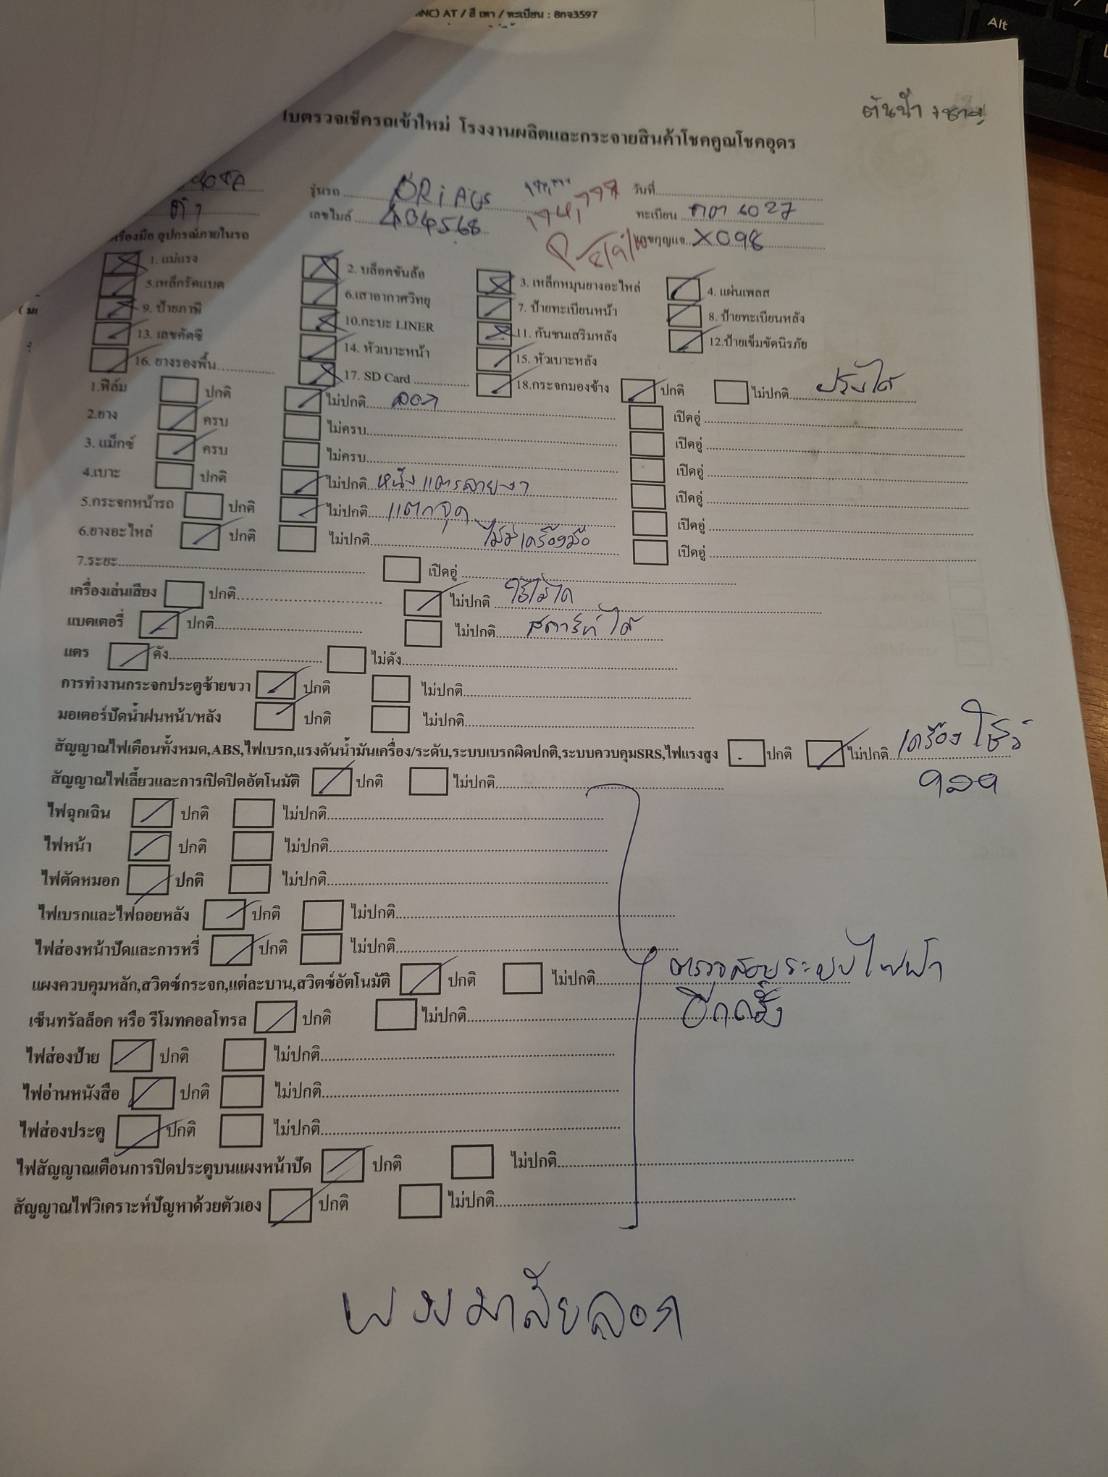 AT / สี เทา / ทะเบียน : 8กจ3597
ใบตรวจเช็ครถเข้าใหม่ โรงงานผลิตและกระจายสินค้าโชคคูณโชคอุดร
รุ่นรถ วันที่
ดำ เลขไมล์ 404568 ทะเบียน 4027
X098
เครื่องมือ อุปกรณ์ภายในรถ
1. แม่แรง 2. บล็อคขันล้อ 3. เหล็กหมุนยางอะไหล่ 4. แผ่นเพลส
5.เหล็กรัดแบต 6.เสาอากาศวิทยุ 7. ป้ายทะเบียนหน้า 8. ป้ายทะเบียนหลัง
9. ป้ายภาษี 10.กะบะ LINER 11. กันชนเสริมหลัง 12.ป้ายเข็มขัดนิรภัย
13. เลขคัตซี 14. หัวเบาะหน้า 15. หัวเบาะหลัง
16. ยางรองพื้น 17. SD Card 18.กระจกมองข้าง ปกติ ไม่ปกติ ปรับได้
1.ฟิล์ม ปกติ ไม่ปกติ ลอก เปิดอู่
2.ยาง ครบ ไม่ครบ เปิดอู่
3. แม็กซ์ ครบ ไม่ครบ เปิดอู่
4.เบาะ ปกติ ไม่ปกติ หนังแตกลายงา เปิดอู่
5.กระจกหน้ารถ ปกติ ไม่ปกติ แตกจุด เปิดอู่
6.ยางอะไหล่ ปกติ ไม่ปกติ ไม่มีเครื่องมือ เปิดอู่
7.ระยะ เปิดอู่
เครื่องเล่นเสียง ปกติ ไม่ปกติ ใช้ไม่ได้
แบตเตอรี่ ปกติ ไม่ปกติ สตาร์ทได้
แตร ดัง ไม่ดัง
การทำงานกระจกประตูซ้ายขวา ปกติ ไม่ปกติ
มอเตอร์ปัดน้ำฝนหน้า/หลัง ปกติ ไม่ปกติ
สัญญาณไฟเตือนทั้งหมด,ABS,ไฟเบรก,แรงดันน้ำมันเครื่อง/ระดับ,ระบบเบรกผิดปกติ,ระบบควบคุมSRS,ไฟแรงสูง ปกติ ไม่ปกติ เครื่องโชว์
สัญญาณไฟเลี้ยวและการเปิดปิดอัตโนมัติ ปกติ ไม่ปกติ
ไฟฉุกเฉิน ปกติ ไม่ปกติ
ไฟหน้า ปกติ ไม่ปกติ
ไฟตัดหมอก ปกติ ไม่ปกติ
ไฟเบรกและไฟถอยหลัง ปกติ ไม่ปกติ
ไฟส่องหน้าปัดและการหรี่ ปกติ ไม่ปกติ
ตรวจสอบระบบไฟฟ้า
แผงควบคุมหลัก,สวิตซ์กระจก,แต่ละบาน,สวิตซ์อัตโนมัติ ปกติ ไม่ปกติ
อีกครั้ง
เซ็นทรัลล็อค หรือ รีโมทคอลโทรล ปกติ ไม่ปกติ
ไฟส่องป้าย ปกติ ไม่ปกติ
ไฟอ่านหนังสือ ปกติ ไม่ปกติ
ไฟส่องประตู ปกติ ไม่ปกติ
ไฟสัญญาณเตือนการปิดประตูบนแผงหน้าปัด ปกติ ไม่ปกติ
สัญญาณไฟวิเคราะห์ปัญหาด้วยตัวเอง ปกติ ไม่ปกติ
พวงมาลัยลอก
Alt